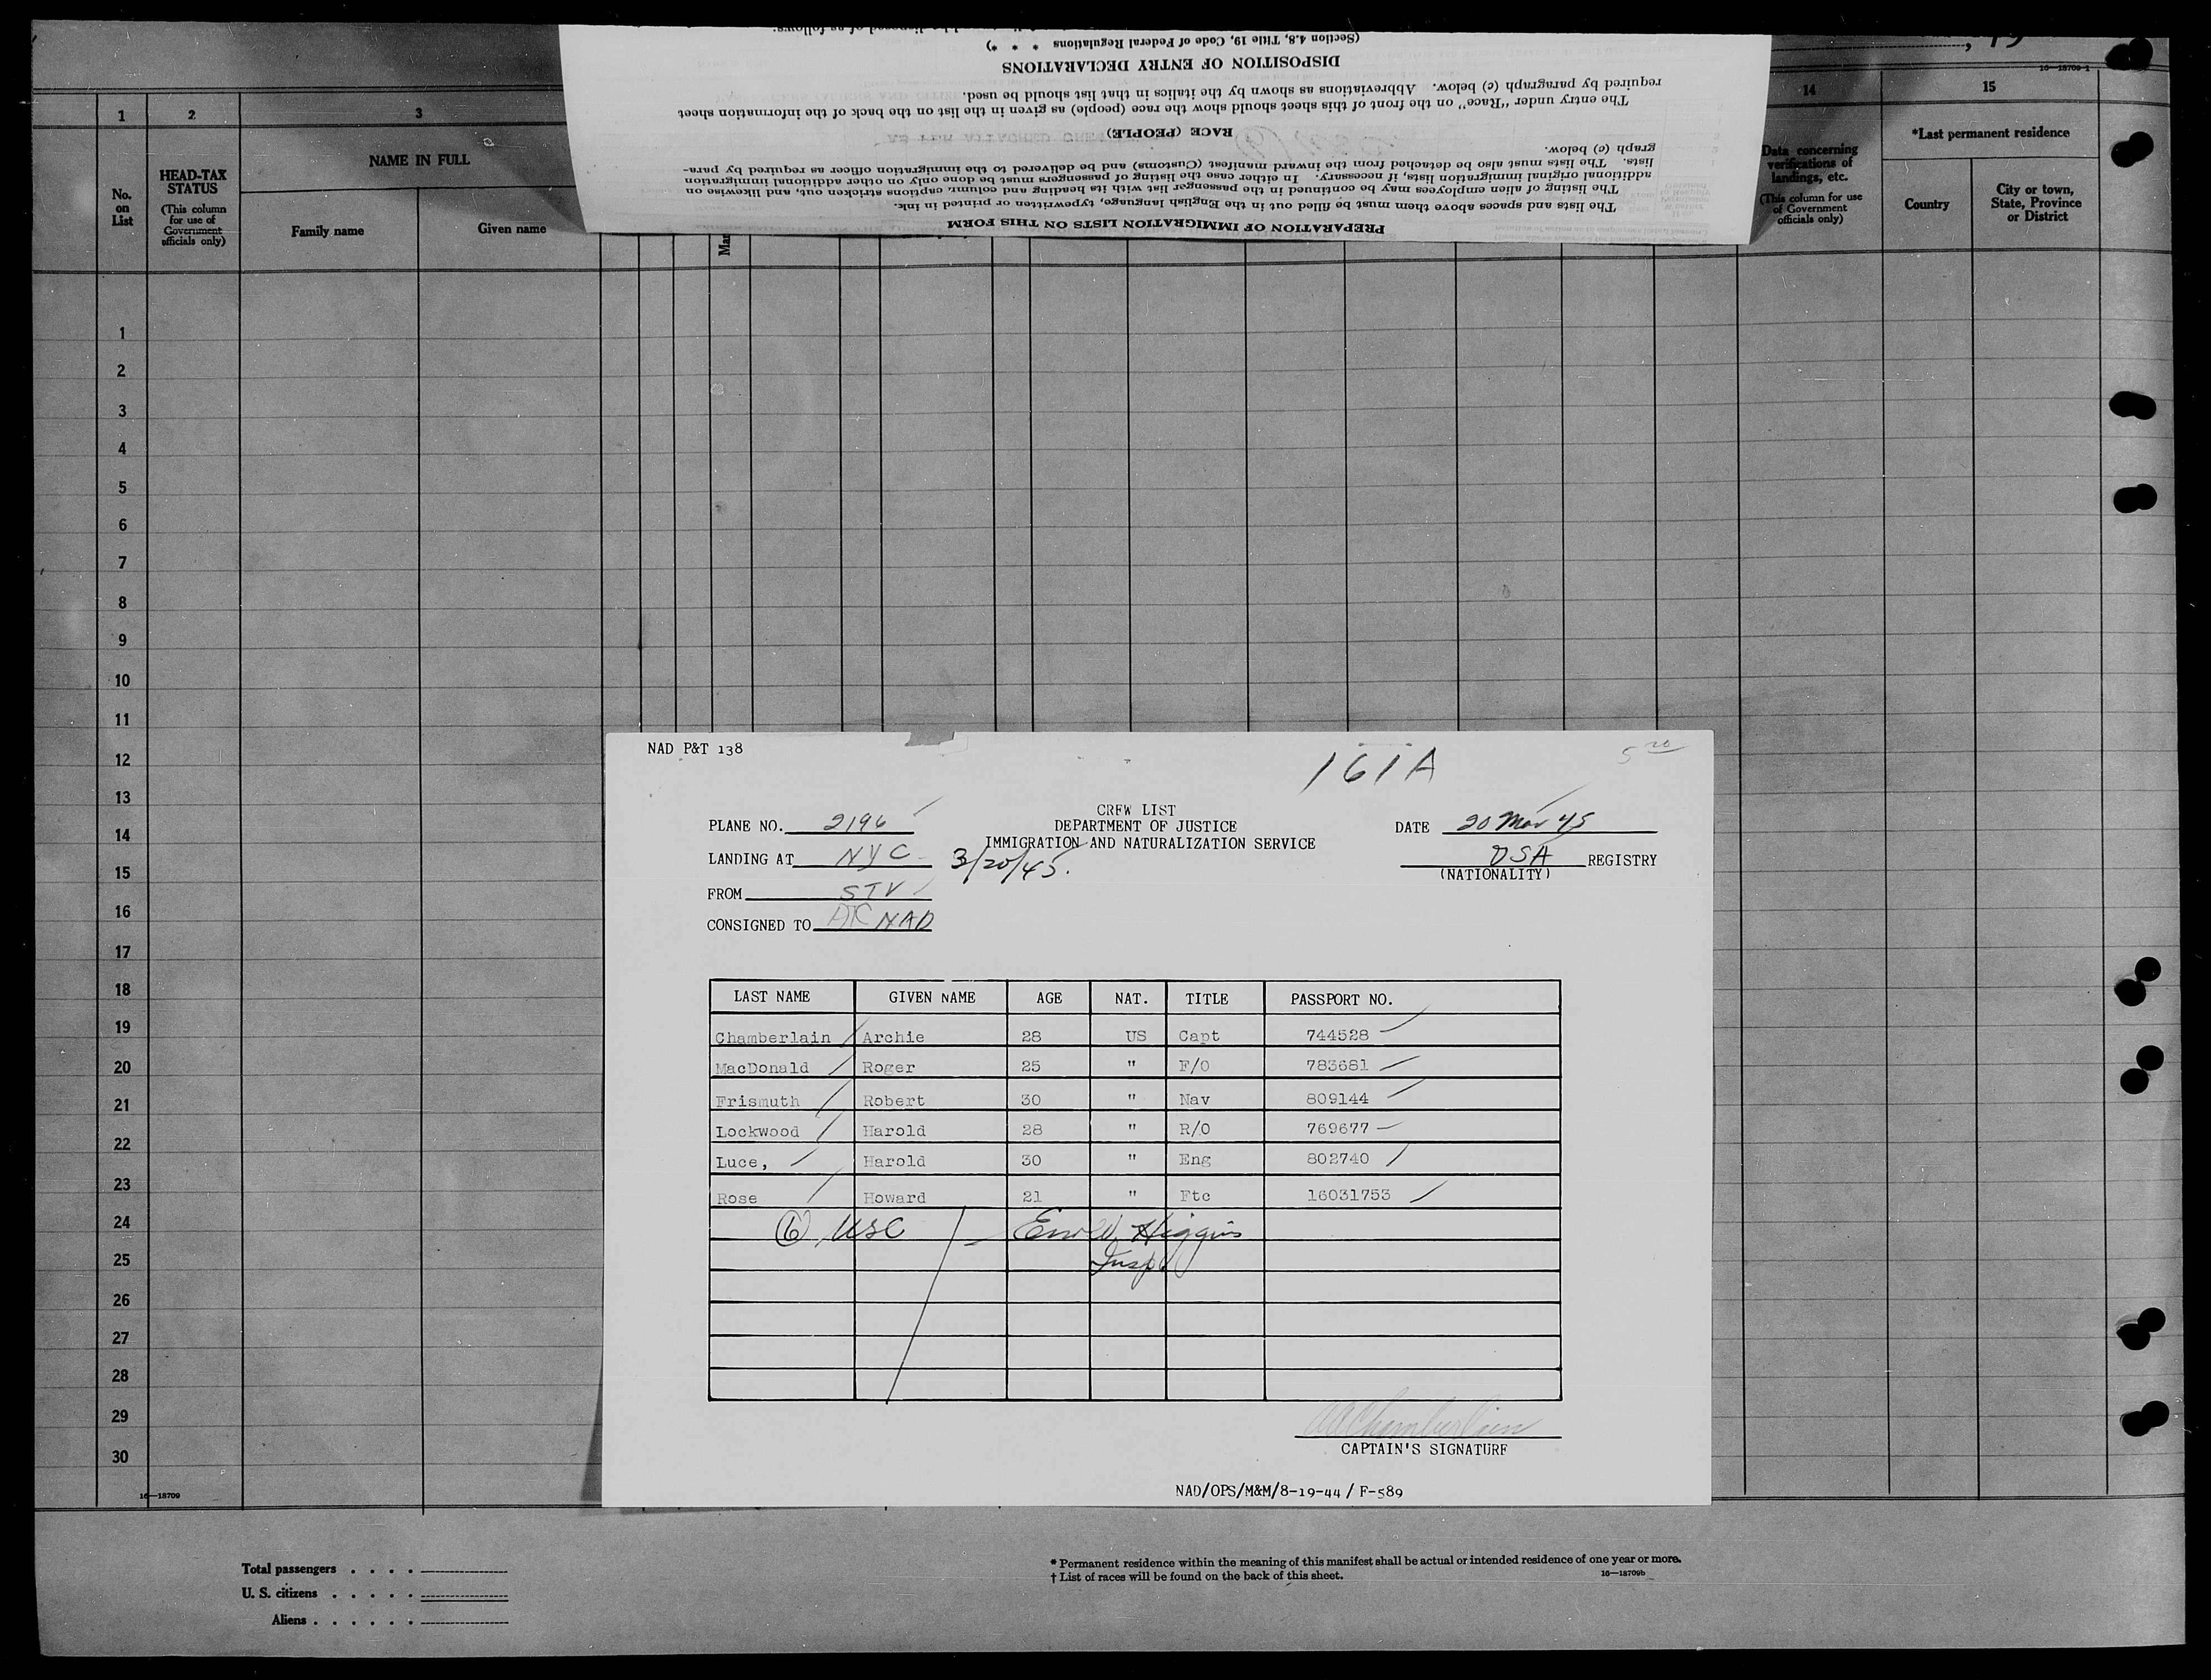 , 19
16—18709-1
1
2
3
14
15
No. on List
HEAD-TAX STATUS
(This column for use of Government officials only)
NAME IN FULL
Family name
Given name
Mar
Data concerning verifications of landings, etc.
(This column for use of Government officials only)
*Last permanent residence
Country
City or town, State, Province or District
PREPARATION OF IMMIGRATION LISTS ON THIS FORM
The lists and spaces above them must be filled out in the English language, typewritten or printed in ink.
The listing of alien employees may be continued in the passenger list with its heading and column captions stricken out, and likewise on
additional original immigration lists, if necessary. In either case the listing of passengers must be done only on other additional immigration
lists. The lists must also be detached from the inward manifest (Customs) and be delivered to the immigration officer as required by para-
graph (c) below.
RACE (PEOPLE)
The entry under "Race" on the front of this sheet should show the race (people) as given in the list on the back of the information sheet
required by paragraph (c) below. Abbreviations as shown by the italics in that list should be used.
DISPOSITION OF ENTRY DECLARATIONS
(Section 4.8, Title 19, Code of Federal Regulations * * *)
1
2
3
4
5
6
7
8
9
10
11
12
13
14
15
16
17
18
19
20
21
22
23
24
25
26
27
28
29
30
16—18709
NAD P&T 138
161A
CREW LIST
DEPARTMENT OF JUSTICE
IMMIGRATION AND NATURALIZATION SERVICE
PLANE NO. 2196
DATE 20 Mar 45
LANDING AT NYC 3/20/45.
USA REGISTRY
(NATIONALITY)
FROM STV
CONSIGNED TO ATC NAD
LAST NAME GIVEN NAME AGE NAT. TITLE PASSPORT NO.
Chamberlain Archie 28 US Capt 744528
MacDonald Roger 25 " F/O 783681
Frismuth Robert 30 " Nav 809144
Lockwood Harold 28 " R/O 769677
Luce, Harold 30 " Eng 802740
Rose Howard 21 " Ftc 16031753
6 USC Higgins
Insp
Chamberlain
CAPTAIN'S SIGNATURE
NAD/OPS/M&M/8-19-44 / F-589
Total passengers . . . .
U. S. citizens . . . . .
Aliens . . . . . .
* Permanent residence within the meaning of this manifest shall be actual or intended residence of one year or more.
† List of races will be found on the back of this sheet.
16—18709b